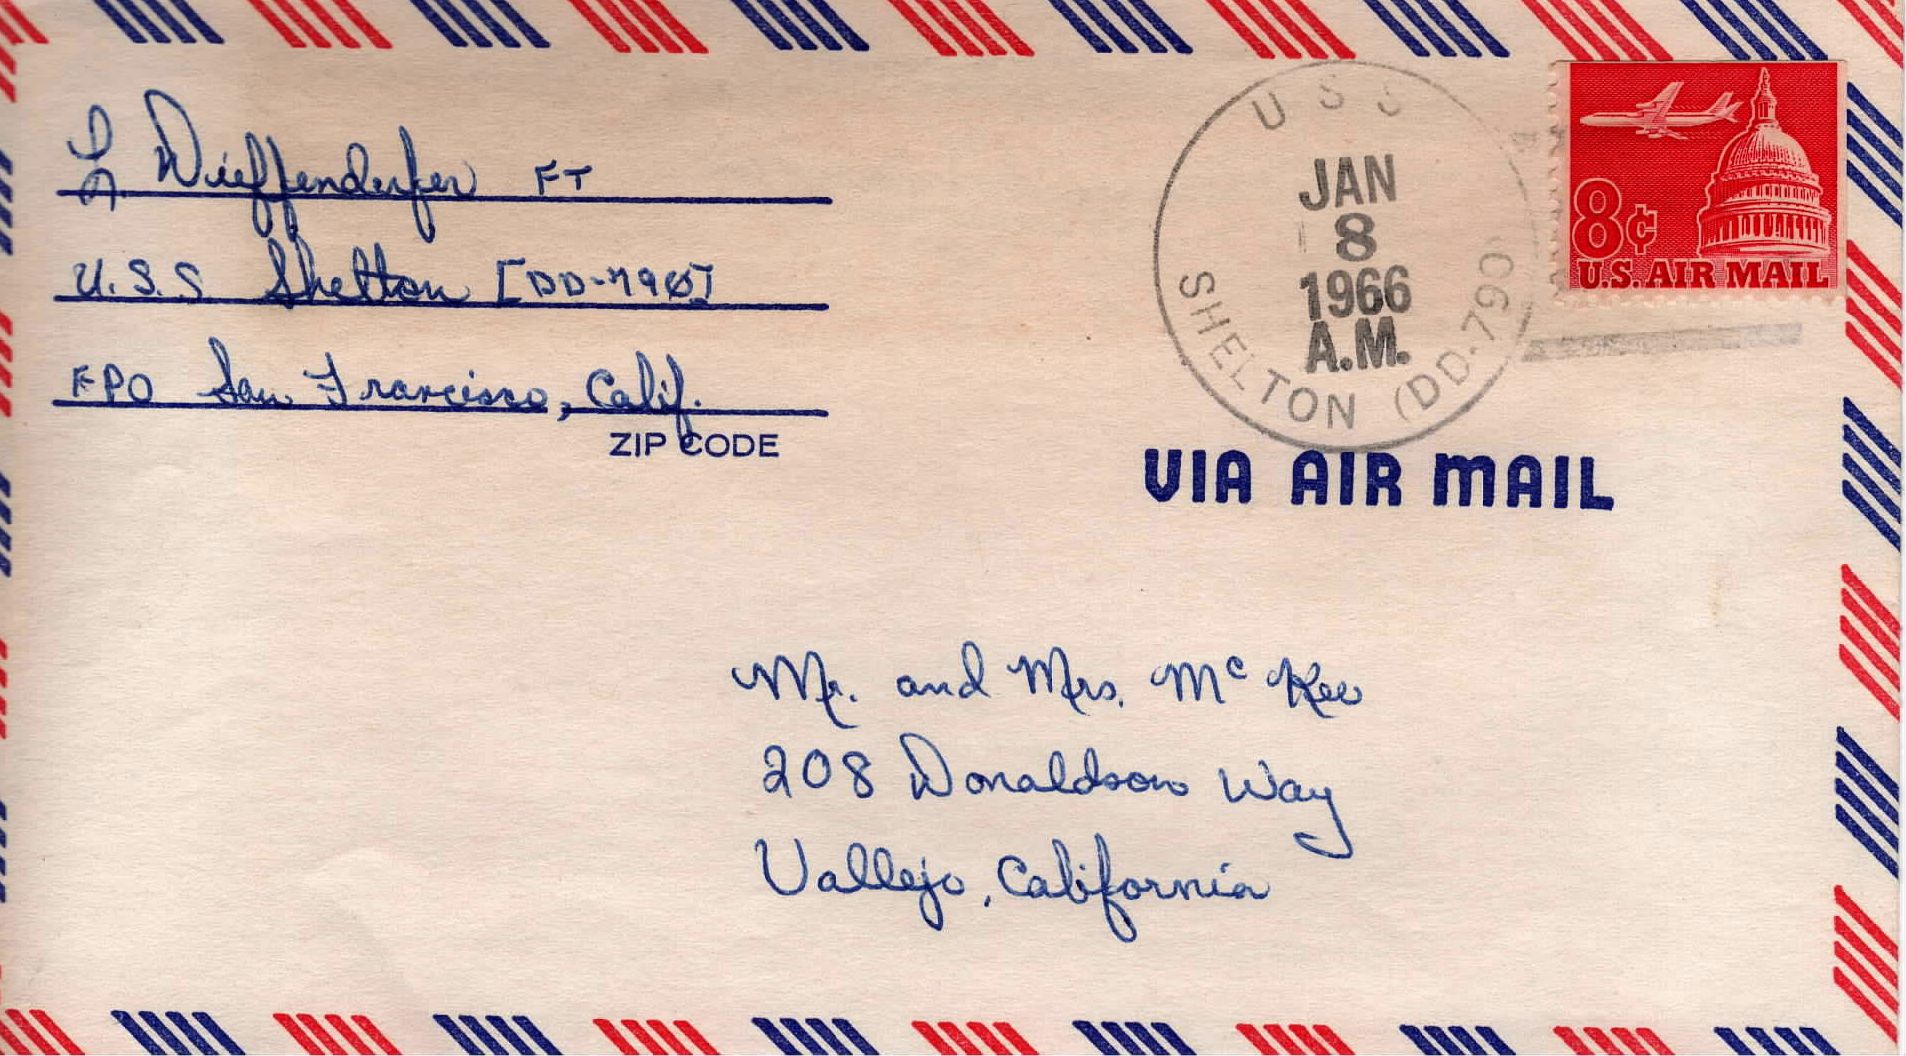 L Dieffenderfer FT
U.S.S Shelton [DD-790]
FPO San Francisco, Calif.
ZIP CODE
USS
SHELTON (DD-790)
JAN
8
1966
A.M.
8¢
U.S. AIR MAIL
VIA AIR MAIL
Mr. and Mrs. McKee
208 Donaldson Way
Vallejo, California